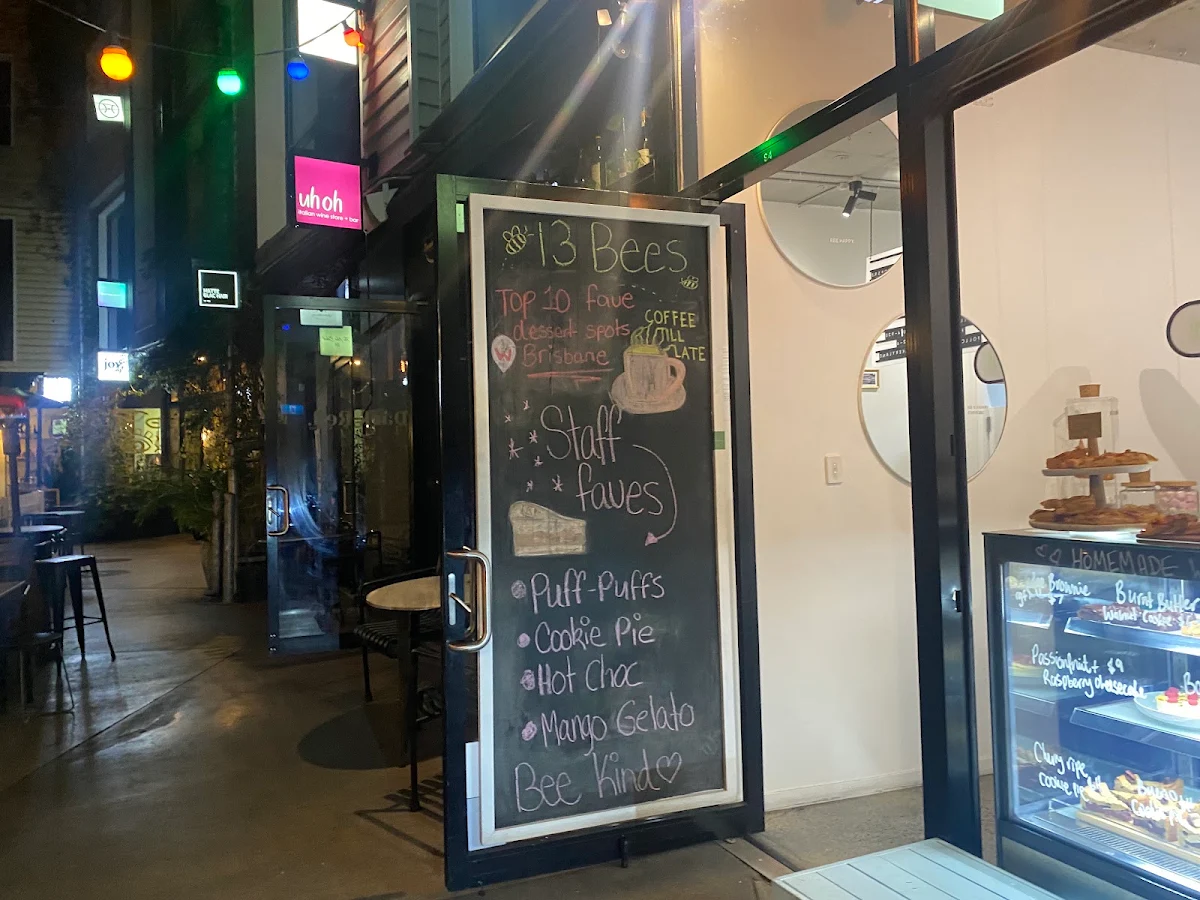 uh oh
italian wine store + bar
joy.
13 Bees
Top 10 fave
dessert spots
Brisbane
COFFEE
TILL
LATE
Staff
faves
Puff-Puffs
Cookie Pie
Hot Choc
Mango Gelato
Bee Kind
HOMEMADE
Brownie
$7
Burnt Butter
Walnut Cookie
Passionfruit + $9
Raspberry cheesecake
Cherry ripe
cookie pie
Bueno